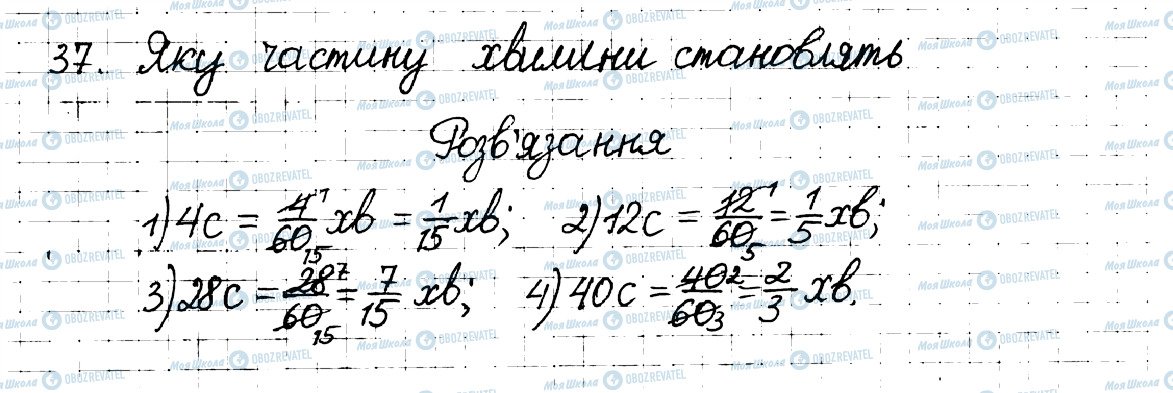 37. Яку частину хвилини становлять
Розв'язання
1) 4с = 4/60 хв = 1/15 хв; 2) 12с = 12/60 = 1/5 хв;
3) 28с = 28/60 = 7/15 хв; 4) 40с = 40/60 = 2/3 хв.